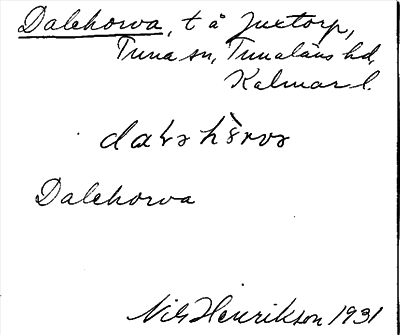 Dalehorva, t å Juxtorp,
Tuna sn, Tunaläns hd,
Kalmar l.
Dalehorva
Nils Henrikson 1931